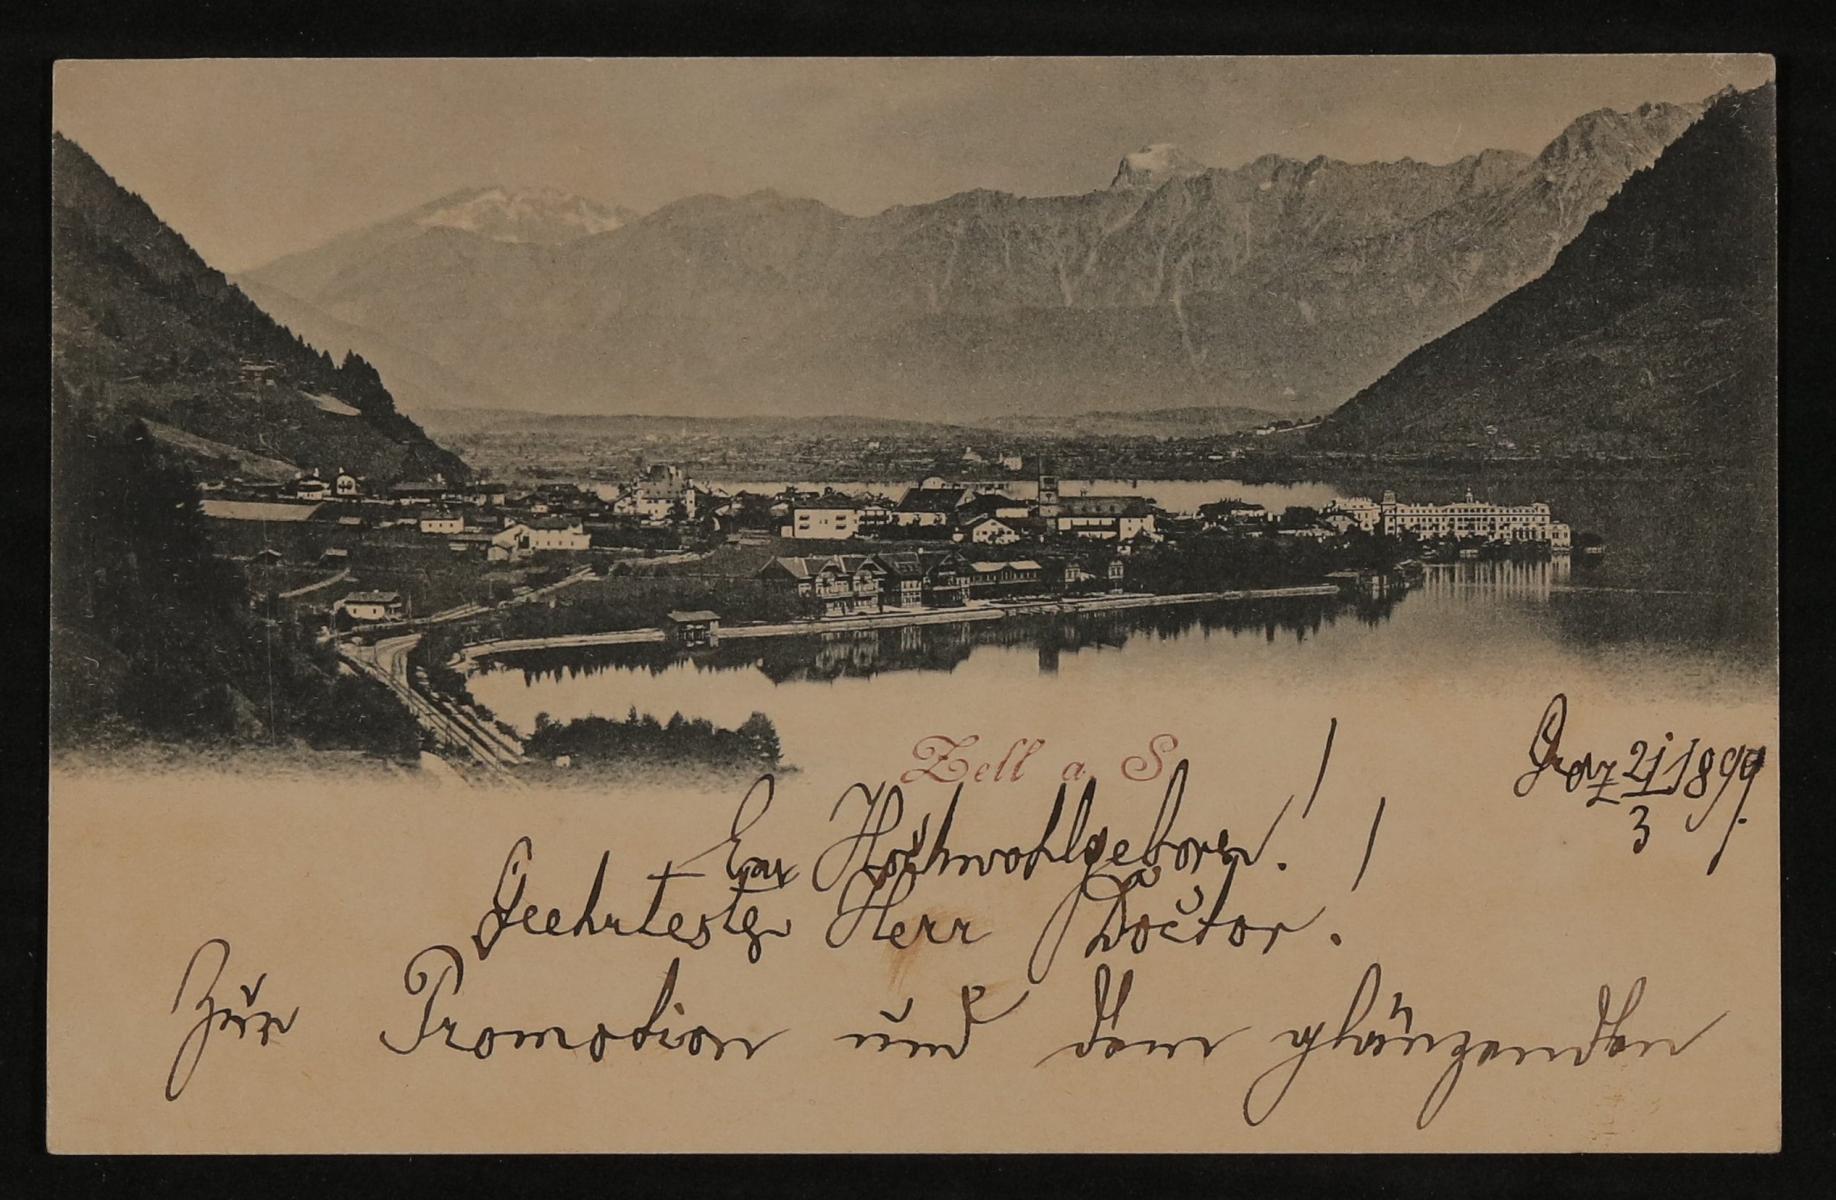 Zell a S
Graz 21/3 1899.
Euer Hochwohlgeboren!
Geehrtester Herr Doctor!
Zur Promotion und dem glänzenden